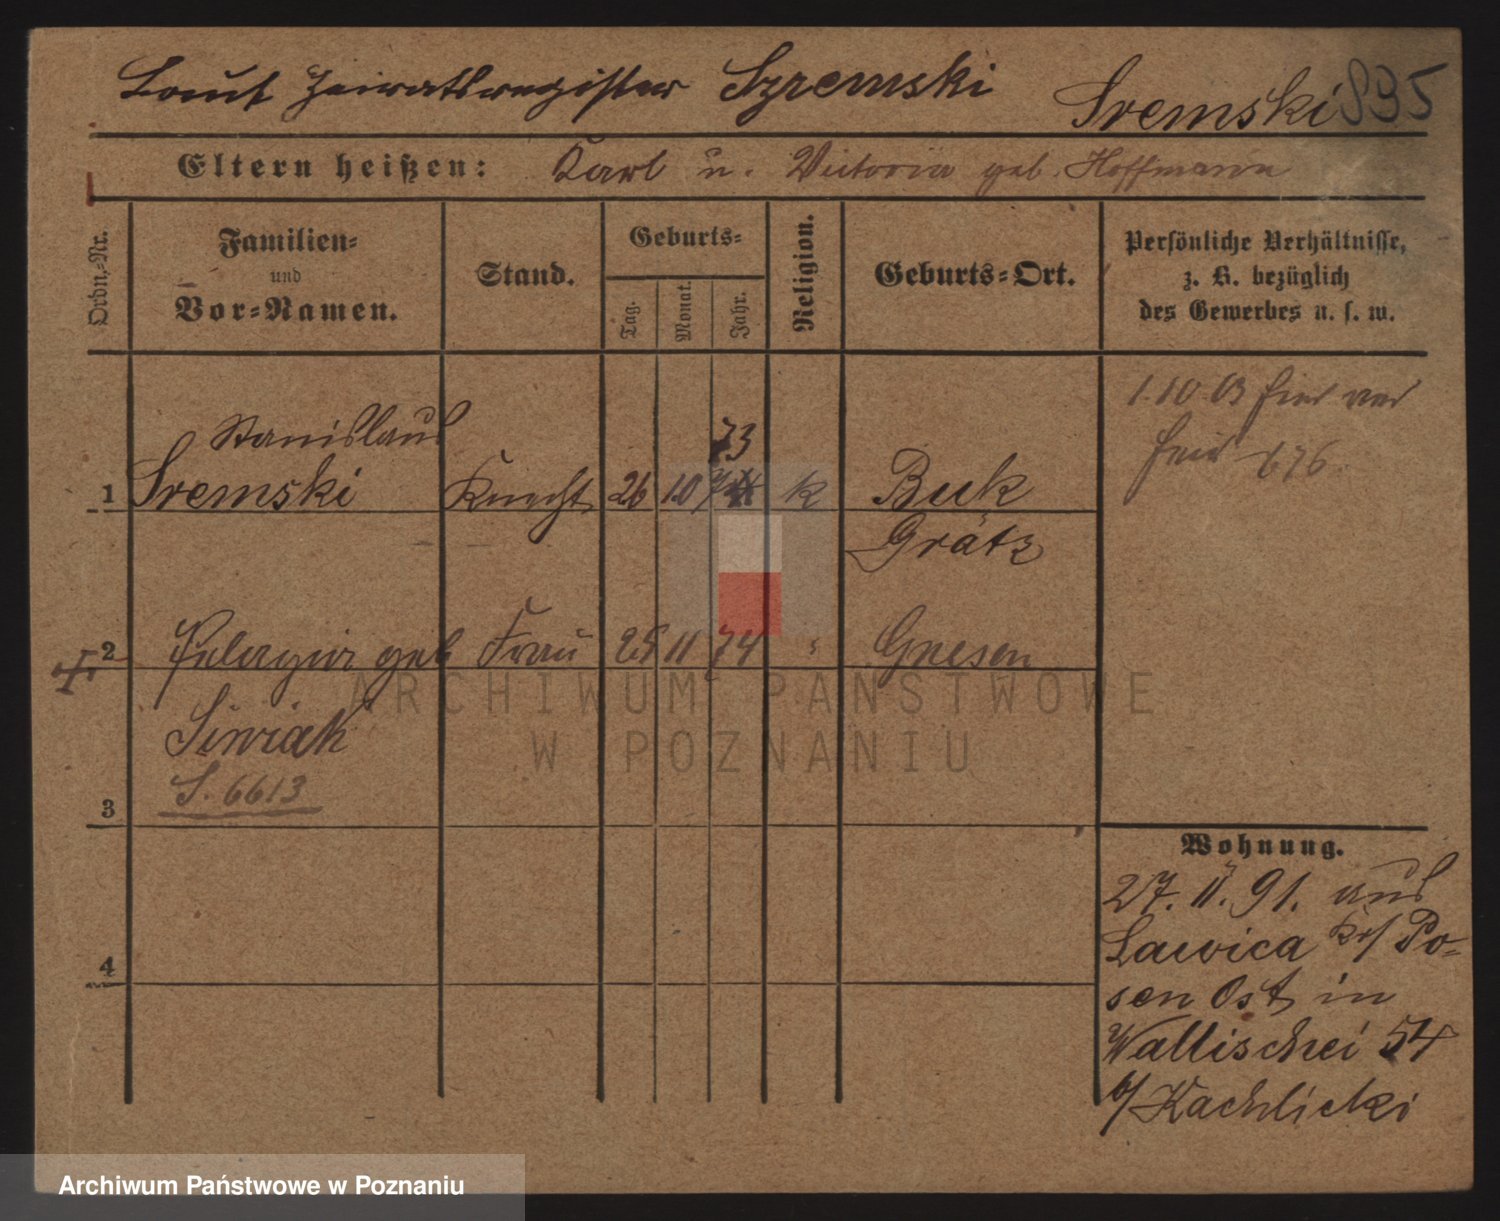 Laut Heiratsregister Szremski Sremski 835
Eltern heißen: Karl u. Victoria geb. Hoffmann
Ordn.-Nr.
Familien-
und
Vor-Namen.
Stand.
Geburts-
Tag.
Monat.
Jahr.
Religion.
Geburts-Ort.
Persönliche Verhältnisse,
z. B. bezüglich
des Gewerbes u. s. w.
1.10.03 hier
676
Stanislaus 73
1 Sremski Knecht 26 10 k Buk
Grätz
2 Pelagia geb Frau 25 11 74 " Gnesen
Siwiak
S. 6613
3
4
Wohnung.
27. 11. 91. aus
Lawica Krs/ Po-
sen Ost in
Wallischei 54
b/ Kachlicki
ARCHIWUM PAŃSTWOWE
W POZNANIU
Archiwum Państwowe w Poznaniu